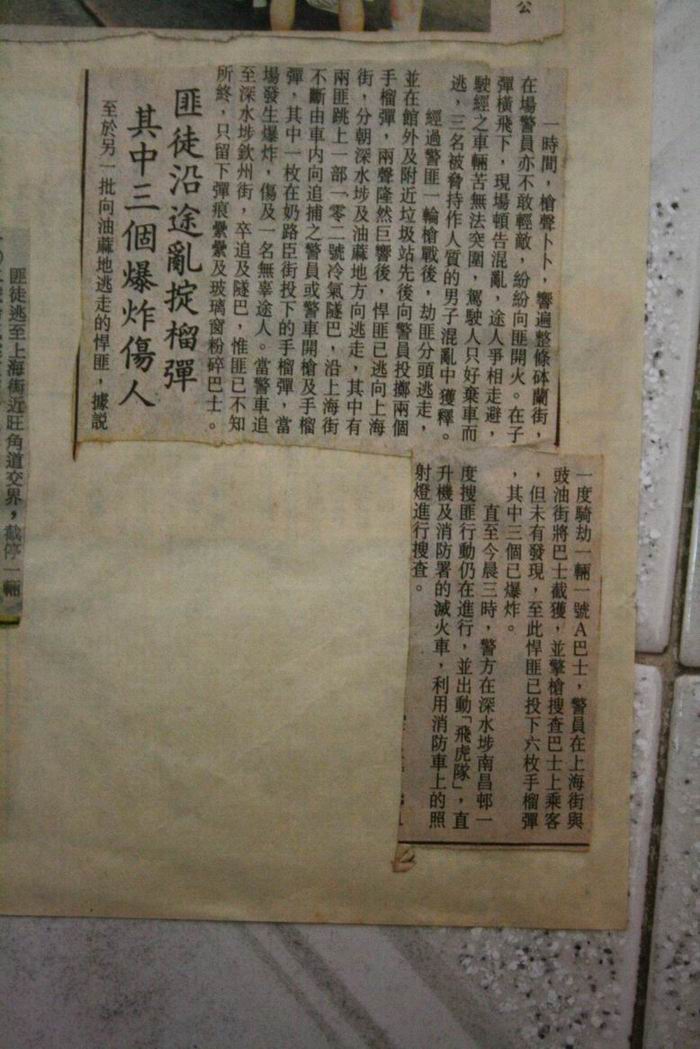 公
一時間，槍聲卜卜，響遍整條砵蘭街，
在場警員亦不敢輕敵，紛紛向匪開火。在子
彈橫飛下，現場頓告混亂，途人爭相走避，
駛經之車輛苦無法突圍，駕駛人只好棄車而
逃，三名被脅持作人質的男子混亂中獲釋。
經過警匪一輪槍戰後，劫匪分頭逃走，
並在館外及附近垃圾站先後向警員投擲兩個
手榴彈，兩聲隆然巨響後，悍匪已逃向上海
街，分朝深水埗及油蔴地方向逃走，其中有
兩匪跳上一部一零二號冷氣隧巴，沿上海街
不斷由車內向追捕之警員或警車開槍及手榴
彈，其中一枚在奶路臣街投下的手榴彈，當
場發生爆炸，傷及一名無辜途人。當警車追
至深水埗欽州街，卒追及隧巴，惟匪已不知
所終，只留下彈痕纍纍及玻璃窗粉碎巴士。
匪徒沿途亂掟榴彈
其中三個爆炸傷人
至於另一批向油蔴地逃走的悍匪，據説
一度騎劫一輛一號Ａ巴士，警員在上海街與
豉油街將巴士截獲，並擎槍搜查巴士上乘客
，但未有發現，至此悍匪已投下六枚手榴彈
，其中三個已爆炸。
直至今晨三時，警方在深水埗南昌邨一
度搜匪行動仍在進行，並出動「飛虎隊」，直
升機及消防署的滅火車，利用消防車上的照
射燈進行搜查。
匪徒逃至上海街近旺角道交界，截停一輛